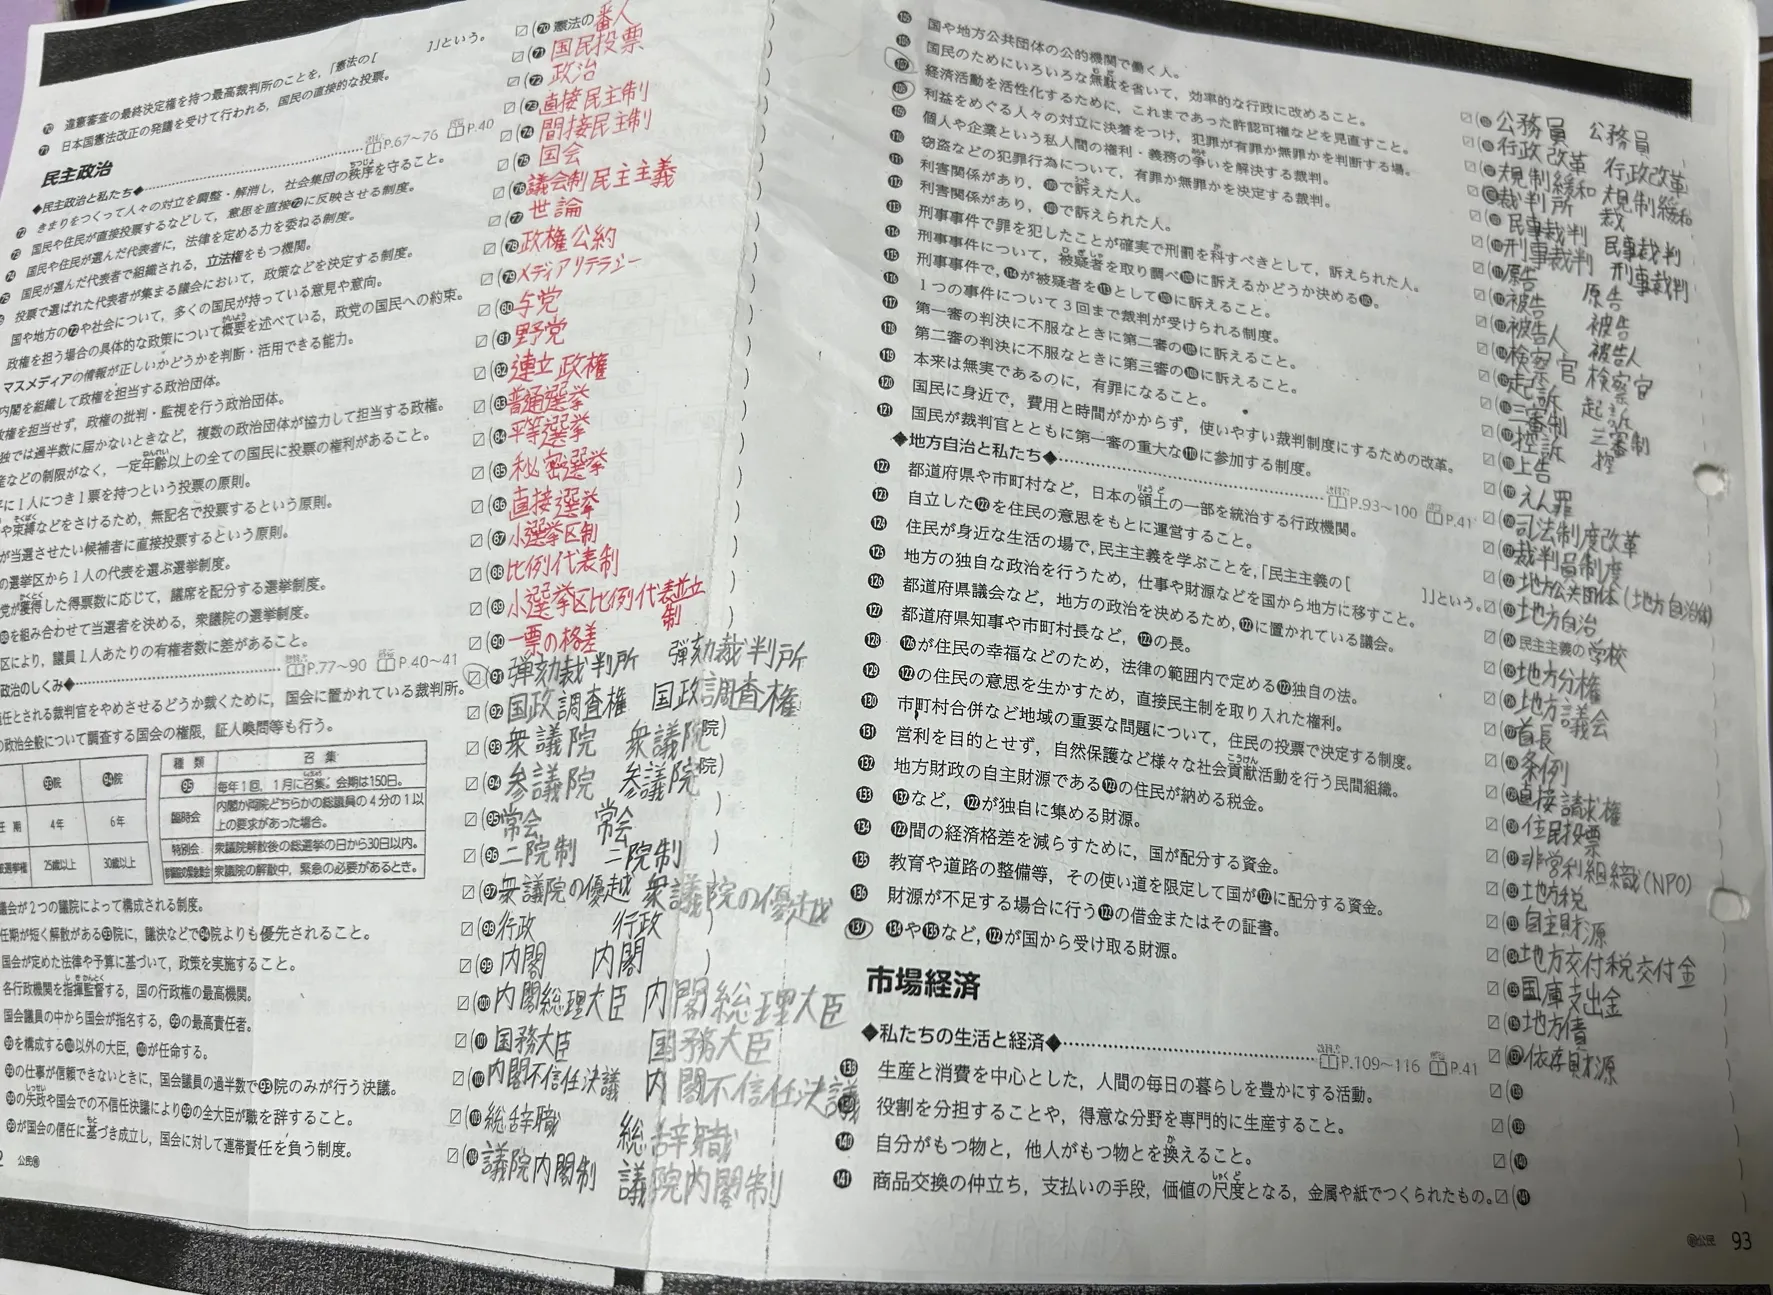 ⑦⓪ 違憲審査の最終決定権を持つ最高裁判所のことを,「憲法の[　　　]」という。
⑦① 日本国憲法改正の発議を受けて行われる,国民の直接的な投票。
民主政治
◆民主政治と私たち◆ P.67~76 P.40
きまりをつくって人々の対立を調整・解消し,社会集団の秩序を守ること。
国民や住民が直接投票するなどして,意思を直接㋆に反映させる制度。
国民や住民が選んだ代表者に,法律を定める力を委ねる制度。
国民が選んだ代表者で組織される,立法権をもつ機関。
投票で選ばれた代表者が集まる議会において,政策などを決定する制度。
国や地方の㋆や社会について,多くの国民が持っている意見や意向。
政権を担う場合の具体的な政策について概要を述べている,政党の国民への約束。
マスメディアの情報が正しいかどうかを判断・活用できる能力。
内閣を組織して政権を担当する政治団体。
権を担当せず,政権の批判・監視を行う政治団体。
独では過半数に届かないときなど,複数の政治団体が協力して担当する政権。
産などの制限がなく,一定年齢以上の全ての国民に投票の権利があること。
に1人につき1票を持つという投票の原則。
や束縛などをさけるため,無記名で投票するという原則。
が当選させたい候補者に直接投票するという原則。
の選挙区から1人の代表を選ぶ選挙制度。
党が獲得した得票数に応じて,議席を配分する選挙制度。
を組み合わせて当選者を決める,衆議院の選挙制度。
区により,議員1人あたりの有権者数に差があること。
政治のしくみ◆ P.77~90 P.40~41
任とされる裁判官をやめさせるどうか裁くために,国会に置かれている裁判所。
の政治全般について調査する国会の権限,証人喚問等も行う。
93院 94院
期 4年 6年
選挙権 25歳以上 30歳以上
種類 召集
95 毎年1回,1月に召集。会期は150日。
臨時会 内閣か両院どちらかの総議員の4分の1以上の要求があった場合。
特別会 衆議院解散後の総選挙の日から30日以内。
参議院の緊急集会 衆議院の解散中,緊急の必要があるとき。
議会が2つの議院によって構成される制度。
任期が短く解散がある93院に,議決などで94院よりも優先されること。
国会が定めた法律や予算に基づいて,政策を実施すること。
各行政機関を指揮監督する,国の行政権の最高機関。
国会議員の中から国会が指名する,99の最高責任者。
99を構成する100以外の大臣,100が任命する。
99の仕事が信頼できないときに,国会議員の過半数で93院のみが行う決議。
99の失政や国会での不信任決議により99の全大臣が職を辞すること。
99が国会の信任に基づき成立し,国会に対して連帯責任を負う制度。
2 公民
(70 憲法の番人
(71 国民投票
(72 政治
(73 直接民主制
(74 間接民主制
(75 国会
(76 議会制民主主義
(77 世論
(78 政権公約
(79 メディアリテラシー
(80 与党
(81 野党
(82 連立政権
(83 普通選挙
(84 平等選挙
(85 秘密選挙
(86 直接選挙
(87 小選挙区制
(88 比例代表制
(89 小選挙区比例代表並立制
(90 一票の格差
(91 弾劾裁判所 弾劾裁判所
(92 国政調査権 国政調査権
(93 衆議院 衆議院 院)
(94 参議院 参議院 院)
(95 常会 常会 )
(96 二院制 二院制 )
(97 衆議院の優越 衆議院の優越
(98 行政 行政 )
(99 内閣 内閣 )
(100 内閣総理大臣 内閣総理大臣
(101 国務大臣 国務大臣
(102 内閣不信任決議 内閣不信任決議
(103 総辞職 総辞職
(104 議院内閣制 議院内閣制
105 国や地方公共団体の公的機関で働く人。
106 国民のためにいろいろな無駄を省いて,効率的な行政に改めること。
107 経済活動を活性化するために,これまであった許認可権などを見直すこと。
108 利益をめぐる人々の対立に決着をつけ,犯罪が有罪か無罪かを判断する場。
109 個人や企業という私人間の権利・義務の争いを解決する裁判。
110 窃盗などの犯罪行為について,有罪か無罪かを決定する裁判。
111 利害関係があり,109で訴えた人。
112 利害関係があり,109で訴えられた人。
113 刑事事件で罪を犯したことが確実で刑罰を科すべきとして,訴えられた人。
114 刑事事件について,被疑者を取り調べ108に訴えるかどうか決める105。
115 刑事事件で,114が被疑者を113として108に訴えること。
116 1つの事件について3回まで裁判が受けられる制度。
117 第一審の判決に不服なときに第二審の108に訴えること。
118 第二審の判決に不服なときに第三審の108に訴えること。
119 本来は無実であるのに,有罪になること。
120 国民に身近で,費用と時間がかからず,使いやすい裁判制度にするための改革。
121 国民が裁判官とともに第一審の重大な110に参加する制度。
◆地方自治と私たち◆ P.93~100 P.41
122 都道府県や市町村など,日本の領土の一部を統治する行政機関。
123 自立した122を住民の意思をもとに運営すること。
124 住民が身近な生活の場で,民主主義を学ぶことを,「民主主義の[　　　]」という。
125 地方の独自な政治を行うため,仕事や財源などを国から地方に移すこと。
126 都道府県議会など,地方の政治を決めるため,122に置かれている議会。
127 都道府県知事や市町村長など,122の長。
128 126が住民の幸福などのため,法律の範囲内で定める122独自の法。
129 122の住民の意思を生かすため,直接民主制を取り入れた権利。
130 市町村合併など地域の重要な問題について,住民の投票で決定する制度。
131 営利を目的とせず,自然保護など様々な社会貢献活動を行う民間組織。
132 地方財政の自主財源である122の住民が納める税金。
133 132など,122が独自に集める財源。
134 122間の経済格差を減らすために,国が配分する資金。
135 教育や道路の整備等,その使い道を限定して国が122に配分する資金。
136 財源が不足する場合に行う122の借金またはその証書。
137 134や135など,122が国から受け取る財源。
市場経済
◆私たちの生活と経済◆ P.109~116 P.41
138 生産と消費を中心とした,人間の毎日の暮らしを豊かにする活動。
139 役割を分担することや,得意な分野を専門的に生産すること。
140 自分がもつ物と,他人がもつ物とを換えること。
141 商品交換の仲立ち,支払いの手段,価値の尺度となる,金属や紙でつくられたもの。
(105 公務員 公務員
(106 行政改革 行政改革
(107 規制緩和 規制緩和
(108 裁判所 裁
(109 民事裁判 民事裁判
(110 刑事裁判 刑事裁判
(111 原告 原告
(112 被告 被告
(113 被告人 被告人
(114 検察官 検察官
(115 起訴 起訴
(116 三審制 三審制
(117 控訴 控
(118 上告
(119 えん罪
(120 司法制度改革
(121 裁判員制度
(122 地方公共団体(地方自治体)
(123 地方自治
(124 民主主義の学校
(125 地方分権
(126 地方議会
(127 首長
(128 条例
(129 直接請求権
(130 住民投票
(131 非営利組織(NPO)
(132 地方税
(133 自主財源
(134 地方交付税交付金
(135 国庫支出金
(136 地方債
(137 依存財源
(138
(139
(140
(141
公民 93